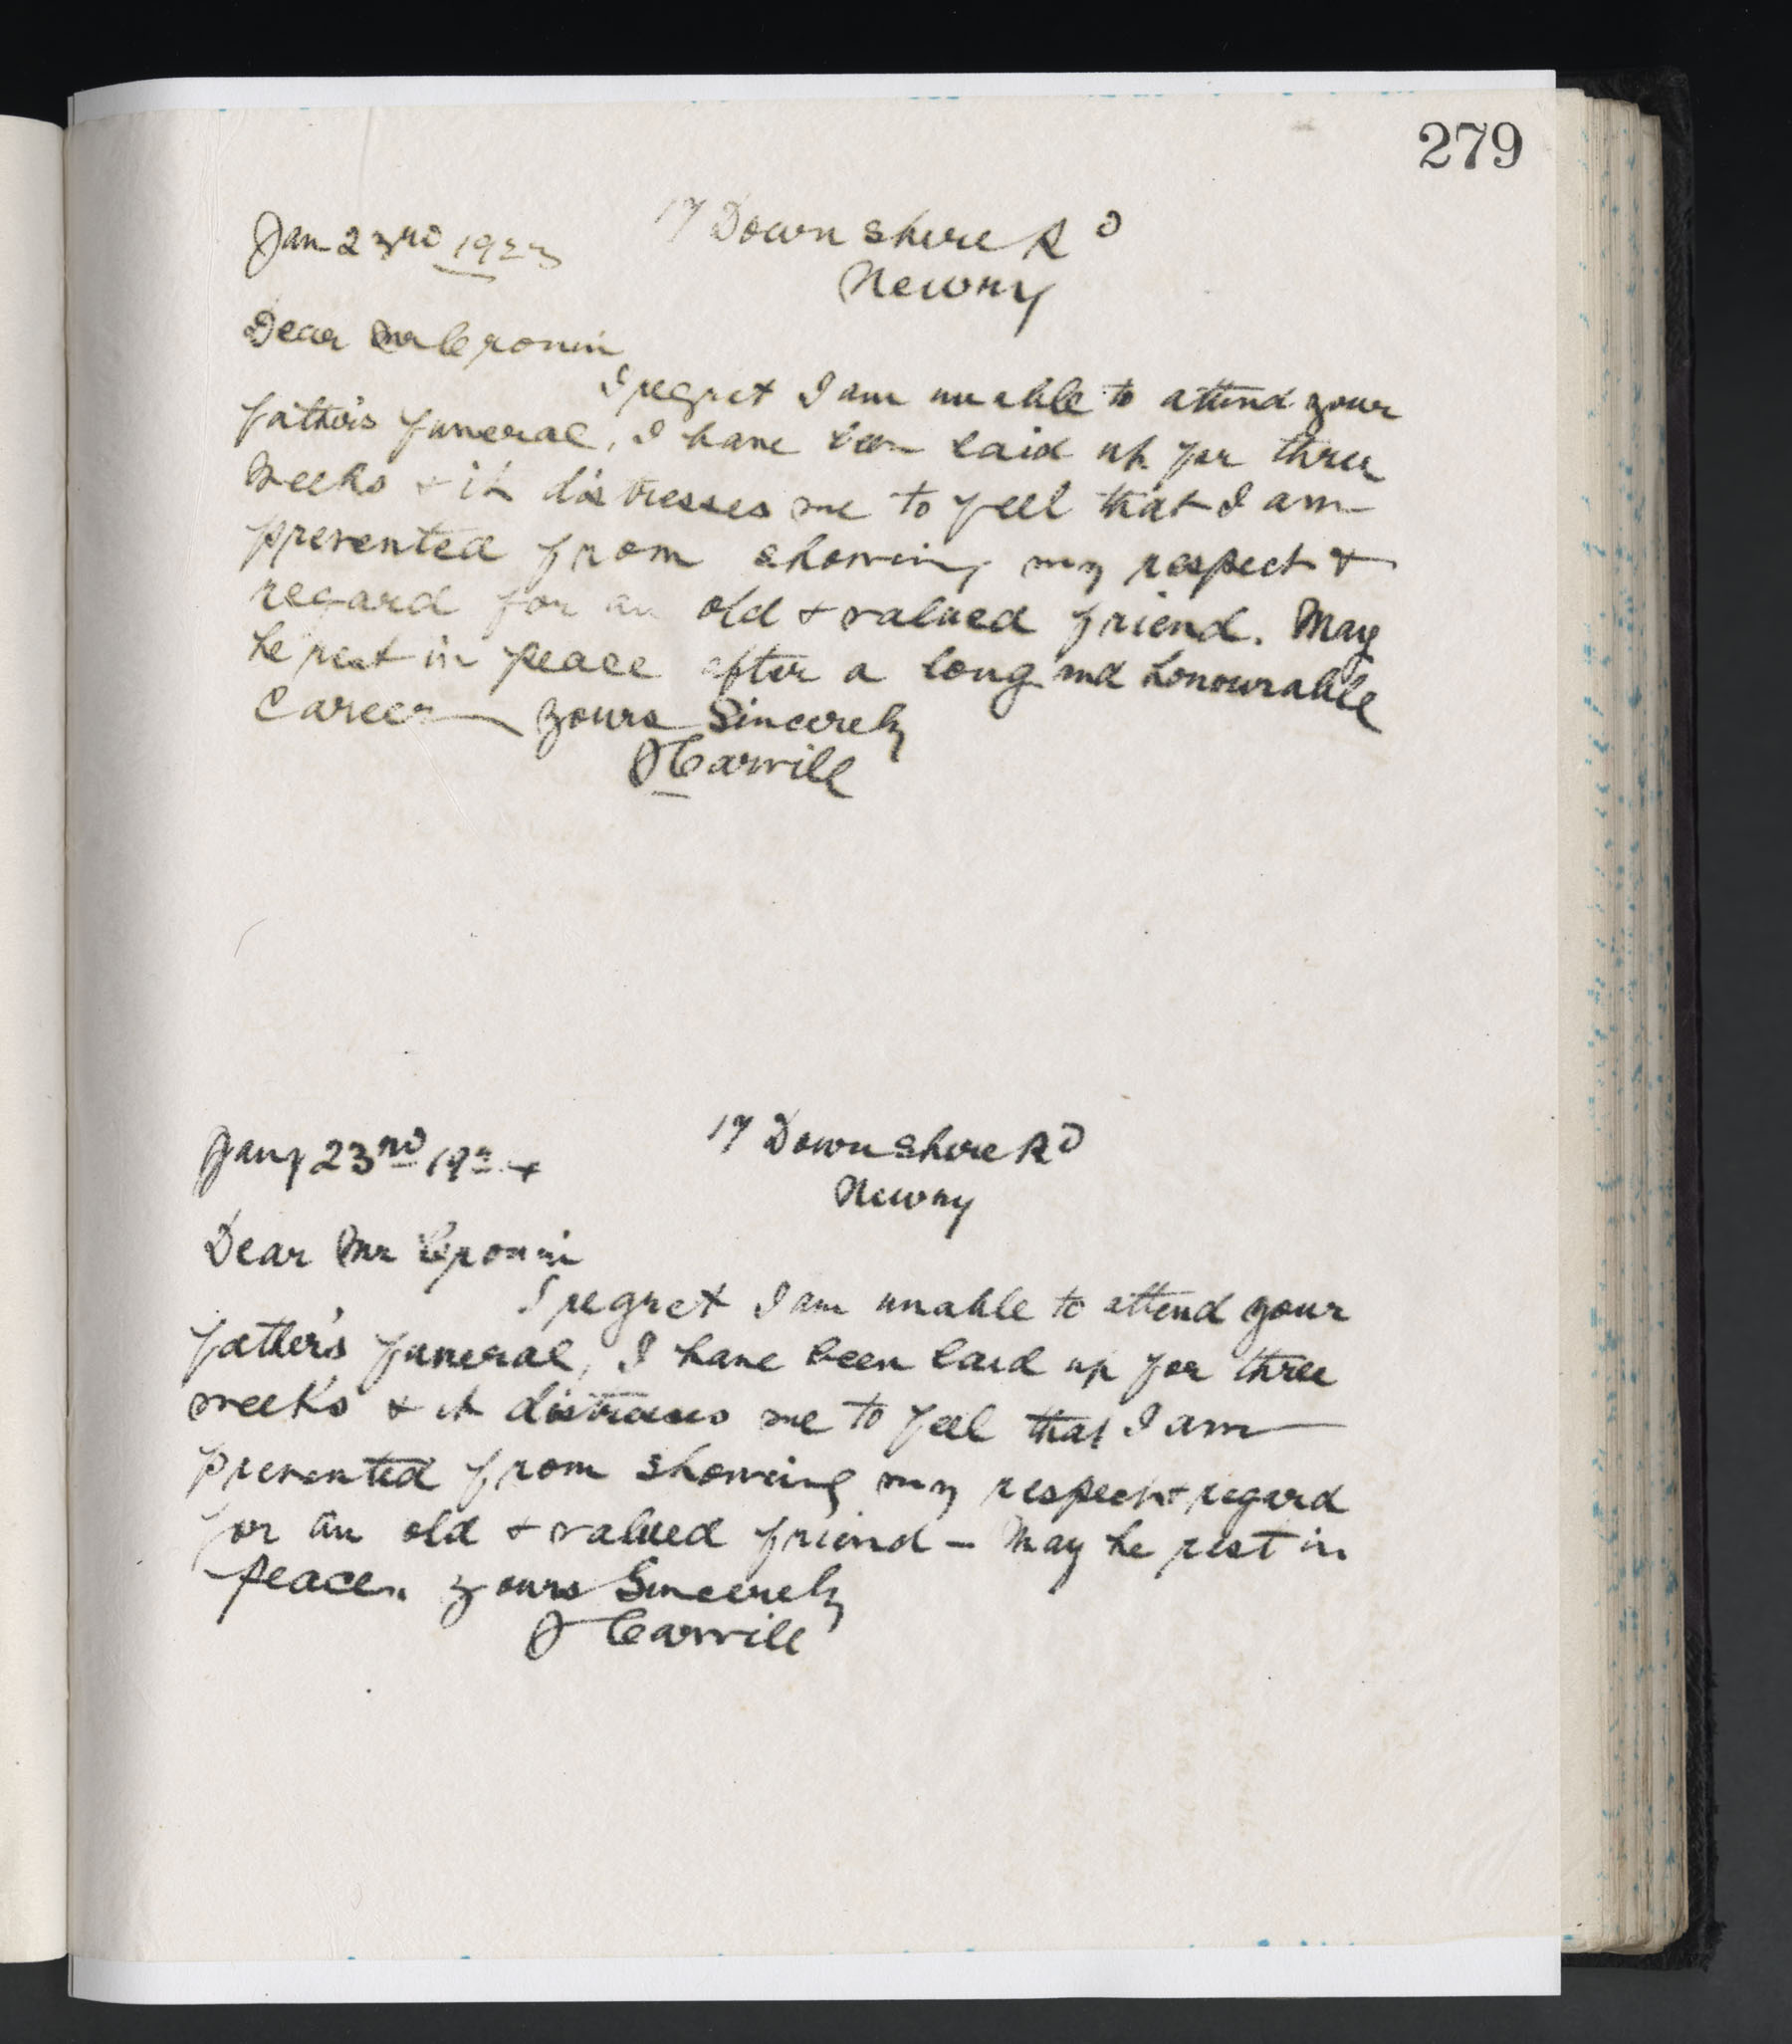 279
17 Downshire Rd
Jan 23rd 1923
Newry
Dear Mr Cronin
I regret I am unable to attend your
father's funeral, I have been laid up for three
weeks & it distresses me to feel that I am
prevented from showing my respect &
regard for an old & valued friend. May
he rest in peace after a long and honourable
career Yours Sincerely
J Carvill
17 Downshire Rd
Jany 23rd
Newry
Dear Mr Cronin
I regret I am unable to attend your
father's funeral, I have been laid up for three
weeks & it distresses me to feel that I am
prevented from showing my respect & regard
for an old & valued friend - May he rest in
peace. Yours Sincerely
J Carvill